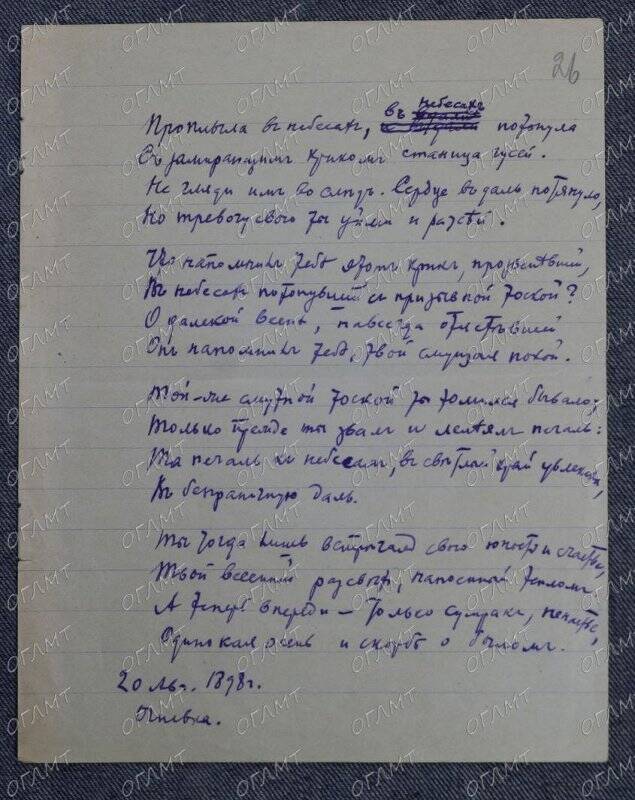 26
Проплыла въ небесахъ, въ небесахъ потонула
Съ замирающимъ крикомъ станица гусей.
Не гляди имъ во слѣдъ. Сердце въ даль потянуло,
Но тревогу свою ты уйми и разсѣй.
Что напомнилъ тебѣ этотъ крикъ, прозвенѣвшій,
Въ небесахъ потонувшій съ призывной тоской?
О далекой веснѣ, навсегда отлетѣвшей
Онъ напомнилъ тебѣ, твой смущая покой.
Той-же смутной тоской ты томился бывало;
Только прежде ты звалъ и лелѣялъ печаль:
Та печаль къ небесамъ, въ свѣтлый край увлекала,
Въ безграничную даль.
Ты тогда лишь встрѣчалъ свою юность и счастье,
Твой весенній разсвѣтъ, напоенный тепломъ
А теперь впереди – только сумракъ, ненастье,
Одинокая осень и скорбь о быломъ.
20 Авг. 1898 г.
Огневка.
ОГЛМТ